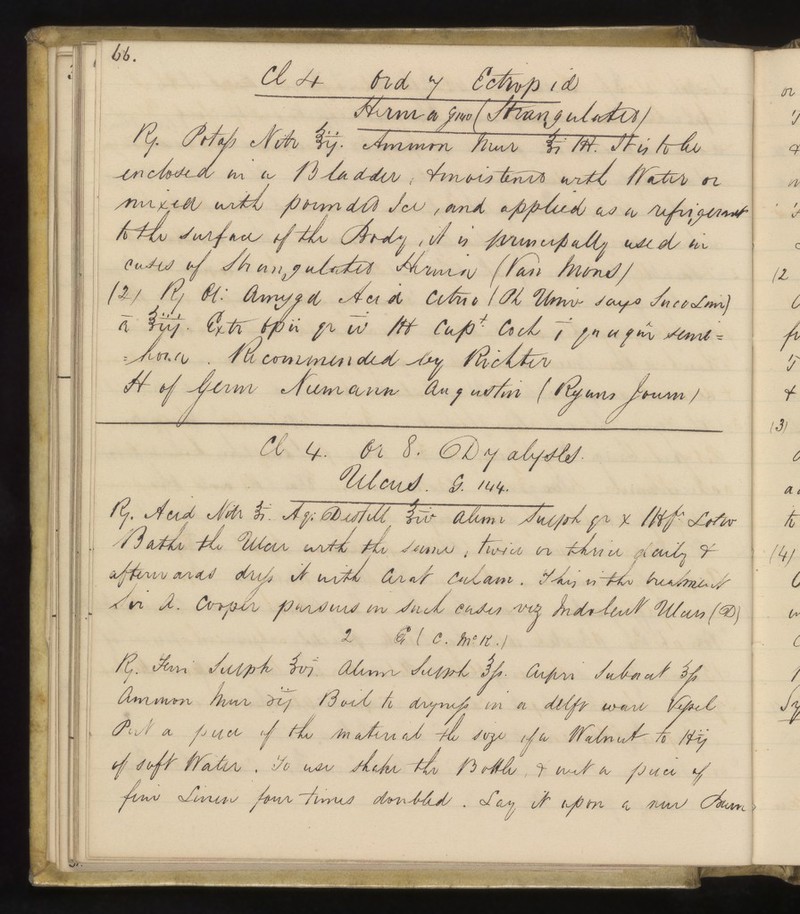 66.
Cl 4 Ord 7 Ectopiæ
Hernia (Strangulated)
Rx. Potass Nitr ℥ij. Ammon Mur ℥i M. It is to be
enclosed in a Bladder, & moistened with Water or
mixed with pounded Ice, and applied as a refrigerant
to the surface of the Body, it is principally used in
cases of Strangulated Hernia (Van Mons)
(2) Rx Ol: Amygd Acid Citric (Ph Univ says Suco Lim)
ā ℥iij. Extr Opii gr iv M Capt. Coch i
=hora. Recommended by Richter
H of Germ Niemann Augustin (Ryans Journ)
Cl 4. Or 8. Dyalyses.
Ulcus. G. 144.
Rx. Acid Nitr ʒi. Aq: Destill ℥iv Alum Sulph gr x Mft Lotio
Bathe the Ulcer with the same, twice or thrice daily &
afterwards dress it with Cerat Calam. This is the treatment
Sir A. Cooper pursues in such cases viz Indolent Ulcers (D)
2 G (C. McK.)
Rx. Ferri Sulph ℥vi Alum Sulph ℥ss. Cupri Subacet ʒss
Ammon Mur ℈ij Boil to dryness in a delft ware Vessel
Put a piece of the material the size of a Walnut to lbij
of soft Water. To use shake the Bottle, & wet a piece of
fine Linen four times doubled. Lay it upon a new
(2
(3)
(4)